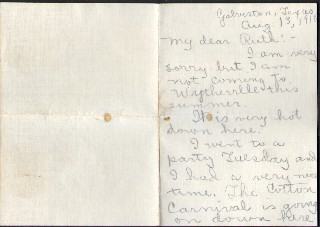 Galveston, Texas
Aug 13, 191
My dear Ruth:-
I am very
sorry but I am
not coming to
Wytheville this
summer.
It is very hot
down here.
I went to a
party Tuesday and
I had a very nice
time. The Cotton
Carnival is going
on down here